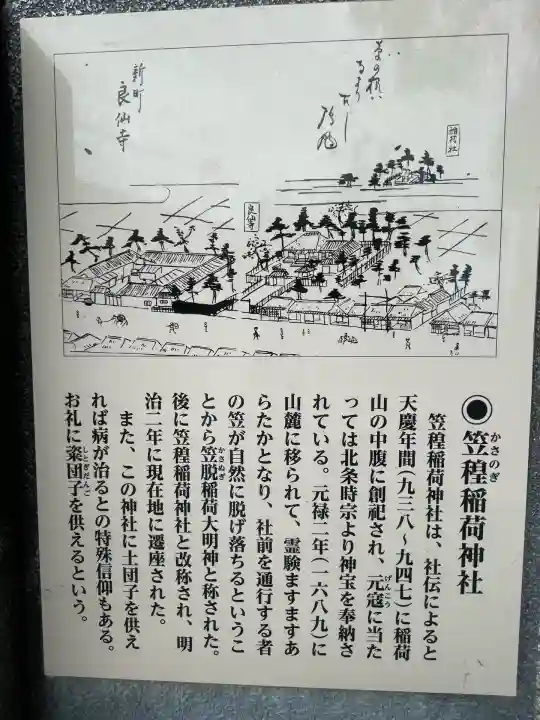 新町
良仙寺
稲荷社
良仙寺
◉笠䅣稲荷神社
かさのぎ
笠䅣稲荷神社は、社伝によると
天慶年間(九三八〜九四七)に稲荷
山の中腹に創祀され、元寇に当た
げんこう
っては北条時宗より神宝を奉納さ
れている。元禄二年(一六八九)に
山麓に移られて、霊験ますますあ
らたかとなり、社前を通行する者
の笠が自然に脱げ落ちるというこ
とから笠脱稲荷大明神と称された。
かさぬぎ
後に笠䅣稲荷神社と改称され、明
治二年に現在地に遷座された。
また、この神社に土団子を供え
れば病が治るとの特殊信仰もある。
お礼に粢団子を供えるという。
しとぎだんご